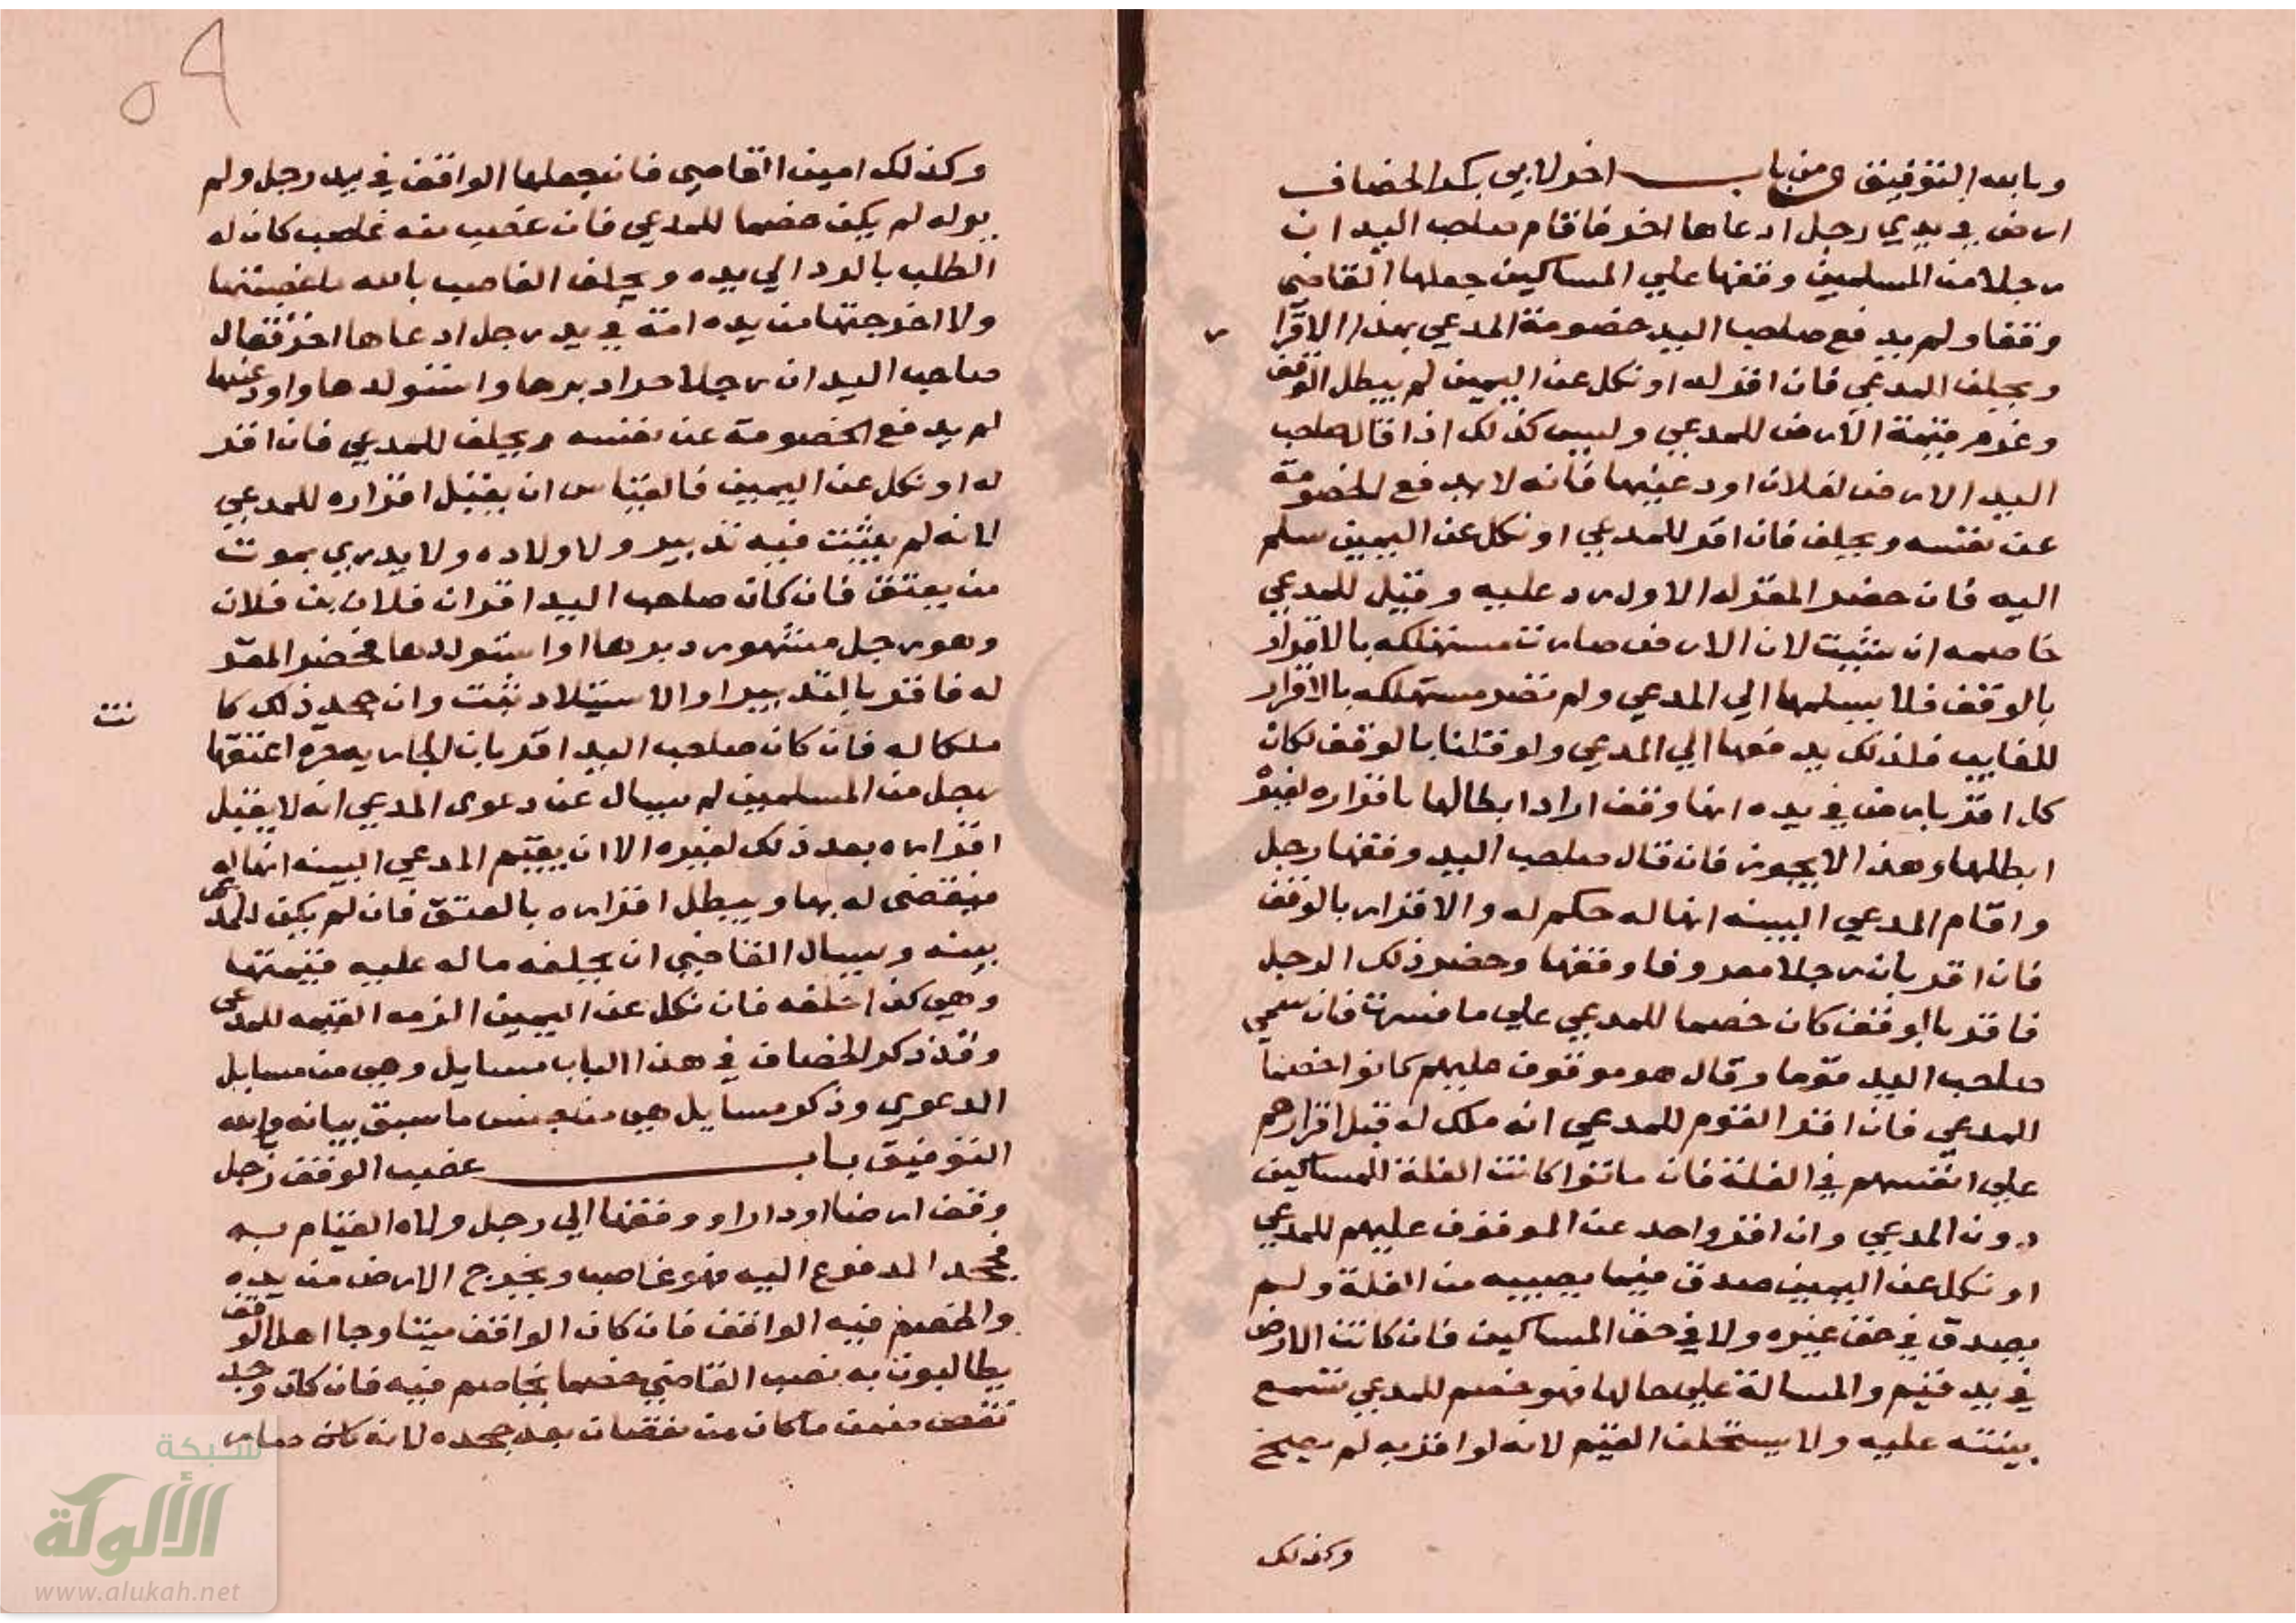 وبالله التوفيق ومن باب اخر لابي بكر الخصاف
ارض في يدي رجل ادعاها اخر فاقام صاحب اليد ان
رجلا من المسلمين وقفها علي المساكين جعلها القاضي
وقفا ولم يدفع صاحب اليد خصومة المدعي بهذا الاقرا
ر
ويحلف المدعي فان اقر له او نكل عن اليمين لم يبطل الوقف
وغرم قيمة الارض للمدعي وليس كذلك اذا قال صاحب
اليد الارض لفلان اودعنيها فانه لا يدفع الخصومة
عن نفسه ويحلف فان اقر للمدعي او نكل عن اليمين سلم
اليه فان حضر المقر له الاول رد عليه وقيل للمدعي
خاصمه ان شيت لان الارض صارت مستهلكه بالاقرار
بالوقف فلا يسلمها الي المدعي ولم تصر مستهلكه بالاقرار
للغايب فلذلك يدفعها الي المدعي ولو قلنا بالوقف لكان
كل اقر بارض في يده انها وقف اراد ابطالها باقراره لغيره
ابطلها وهذا لا يجوز فان قال صاحب اليد وقفها رجل
واقام المدعي البينه انها له حكم له والاقرار بالوقف
فان اقر بان رجلا معروفا وقفها وحضر ذلك الرجل
فاقر بالوقف كان خصما للمدعي علي ما فسرت فان سمي
صاحب اليد قوما وقال هو موقوف عليهم كانوا خصما
للمدعي فان اقر القوم للمدعي انه ملك له قبل اقرارهم
علي انفسهم في الغلة فان ماتوا كانت الغلة للمساكين
دون المدعي وان اقر واحد من الموقوف عليهم للمدعي
او نكل عن اليمين صدق فيما يصيبه من الغلة ولم
يصدق في حق غيره ولا في حق المساكين فان كانت الارض
في يد قيم والمسالة علي حالها فهو خصم للمدعي تسمع
بينته عليه ولا يستحلف القيم لانه لو اقر به لم يصح
وكذلك
٥٩
وكذلك امين القاضي فان جعلها الواقف في يد رجل ولم
يوله لم يكن خصما للمدعي فان غصب منه غاصب كان له
الطلب بالرد الي يده ويحلف الغاصب بالله ما غصبتها
ولا اخرجتها من يده امة في يد رجل ادعاها اخر فقال
صاحب اليد ان رجلا حرا دبرها واستولدها واودعنيها
لم يدفع الخصومة عن نفسه ويحلف للمدعي فان اقر
له او نكل عن اليمين فالقياس ان يقبل اقراره للمدعي
لانه لم يثبت فيه تدبير ولا ولاده ولا يدري بموت
من يعتق فان كان صاحب اليد اقر ان فلان بن فلان
وهو رجل مشهور دبرها او استولدها فحضر المقر
له فاقر بالتدبير او الاستيلاد ثبت وان جحد ذلك كا
نت
ملكا له فان كان صاحب اليد اقر بان الجاريه حره اعتقها
رجل من المسلمين لم يسال عن دعوي المدعي انه لا يقبل
اقراره بعد ذلك لغيره الا ان يقيم المدعي البينه انها له
فيقضي له بها ويبطل اقراره بالعتق فان لم يكن للمدعي
بينه ويسال القاضي ان يحلفه ما له عليه قيمتها
وهي كذا حلفه فان نكل عن اليمين الزمه القيمه للمدعي
وقد ذكر الخصاف في هذا الباب مسايل وهي من مسايل
الدعوي وذكر مسايل هي من جنس ما سبق بيانه وبالله
التوفيق باب غصب الوقف رجل
وقف ارضا او دارا ووقفها الي رجل ولاه القيام به
فجحد المدفوع اليه فهو غاصب ويخرج الارض من يده
والخصم فيه الواقف فان كان الواقف ميتا وجا اهل الوقف
يطالبون به نصب القاضي خصما يخاصم فيه فان كان دخله
نقص ضمن ما كان من نقصان بعد جحده لانه كان صار
شبكة
الألوكة
www.alukah.net